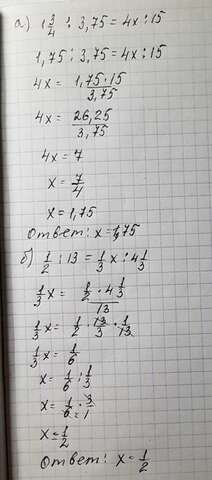 а) 1 3/4 : 3,75 = 4x : 15
1,75 : 3,75 = 4x : 15
4x = 1,75 · 15 / 3,75
4x = 26,25 / 3,75
4x = 7
x = 7/4
x = 1,75
Ответ: x = 1,75
б) 1/2 : 13 = 1/3 x : 4 1/3
1/3 x = 1/2 · 4 1/3 / 13
1/3 x = 1/2 · 13/3 · 1/13
1/3 x = 1/6
x = 1/6 : 1/3
x = 1/6 · 3/1
x = 1/2
Ответ: x = 1/2